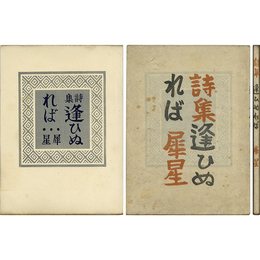 詩集
逢ひぬ
れば…
犀星
詩集逢ひぬ
れば 犀星
逢ひぬれば